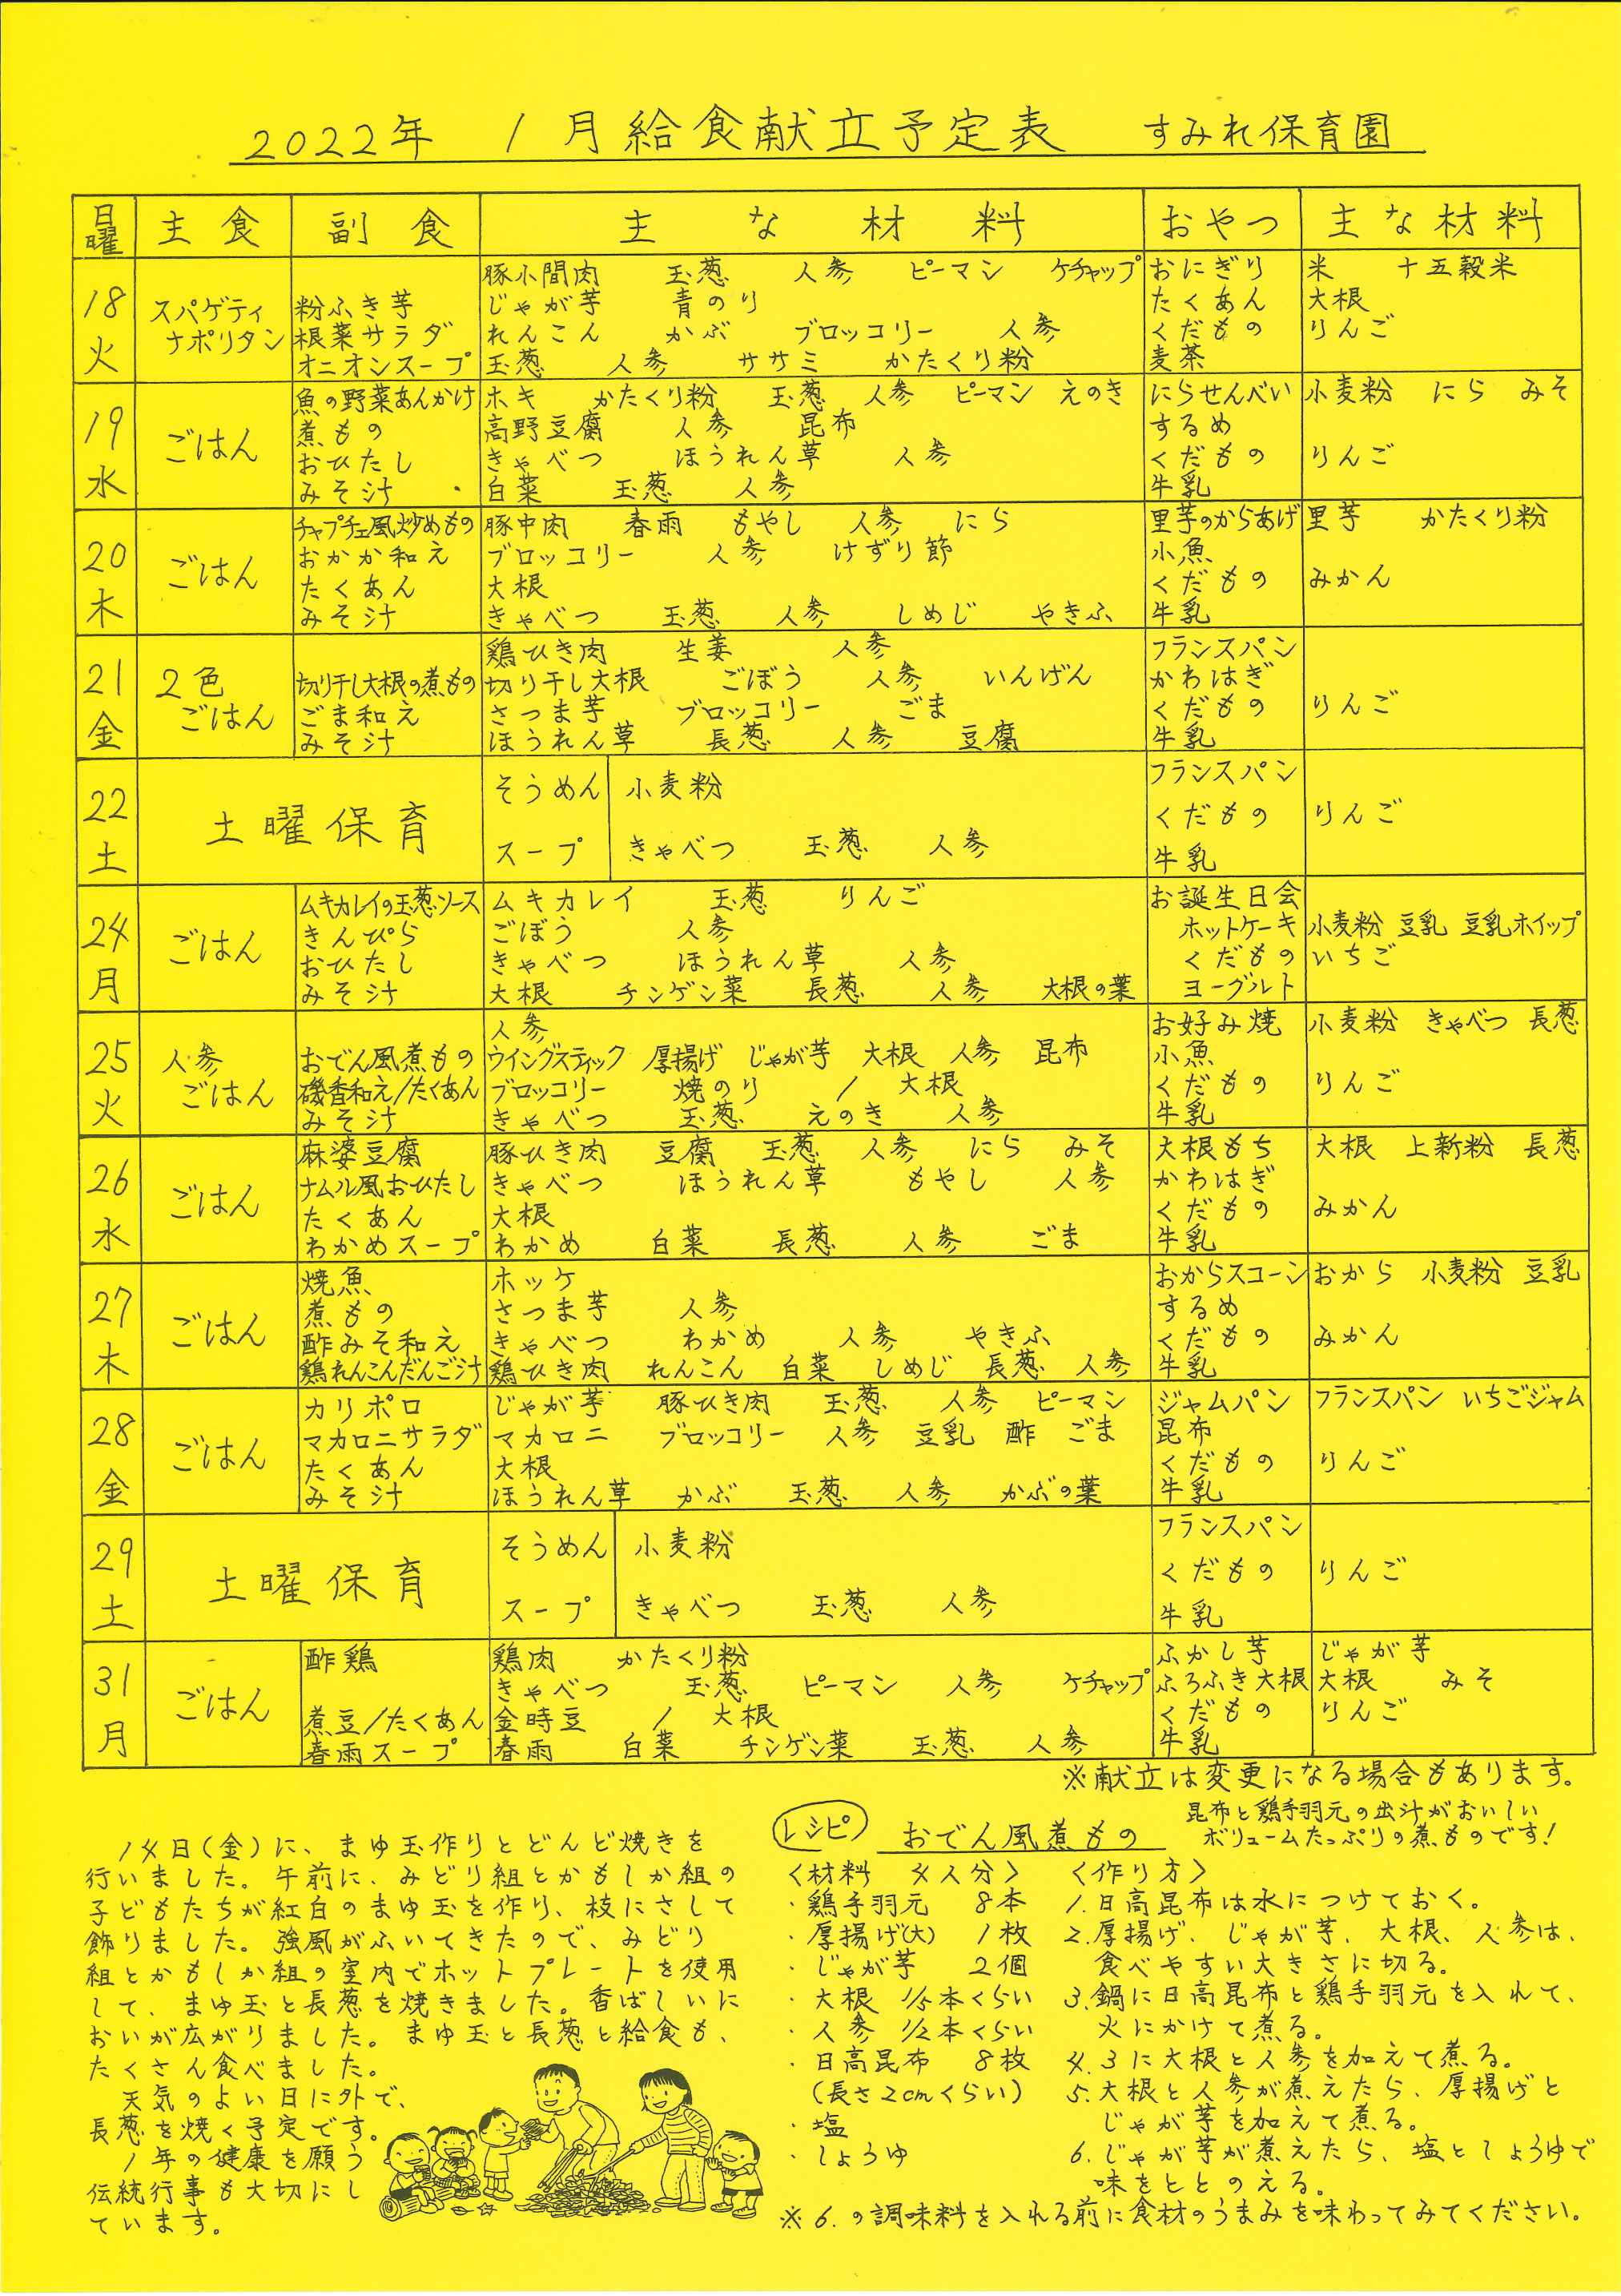 2022年 1月給食献立予定表 すみれ保育園
日曜 主食 副食 主な材料 おやつ 主な材料
18 火 スパゲティナポリタン
粉ふき芋
根菜サラダ
オニオンスープ
豚小間肉 玉葱 人参 ピーマン ケチャップ
じゃが芋 青のり
れんこん かぶ ブロッコリー 人参
玉葱 人参 ササミ かたくり粉
おにぎり 米 十五穀米
たくあん 大根
くだもの りんご
麦茶
19 水 ごはん
魚の野菜あんかけ ホキ かたくり粉 玉葱 人参 ピーマン えのき
煮もの 高野豆腐 人参 昆布
おひたし きゃべつ ほうれん草 人参
みそ汁 白菜 玉葱 人参
にらせんべい 小麦粉 にら みそ
するめ
くだもの りんご
牛乳
20 木 ごはん
チャプチェ風炒めもの 豚中肉 春雨 もやし 人参 にら
おかか和え ブロッコリー 人参 けずり節
たくあん 大根
みそ汁 きゃべつ 玉葱 人参 しめじ やきふ
里芋のからあげ 里芋 かたくり粉
小魚
くだもの みかん
牛乳
21 金 2色ごはん
鶏ひき肉 生姜 人参
切り干し大根の煮もの 切り干し大根 ごぼう 人参 いんげん
ごま和え さつま芋 ブロッコリー ごま
みそ汁 ほうれん草 長葱 人参 豆腐
フランスパン
かわはぎ
くだもの りんご
牛乳
22 土 土曜保育
そうめん 小麦粉
スープ きゃべつ 玉葱 人参
フランスパン
くだもの りんご
牛乳
24 月 ごはん
ムキカレイの玉葱ソース ムキカレイ 玉葱 りんご
きんぴら ごぼう 人参
おひたし きゃべつ ほうれん草 人参
みそ汁 大根 チンゲン菜 長葱 人参 大根の葉
お誕生日会
ホットケーキ 小麦粉 豆乳 豆乳ホイップ
くだもの いちご
ヨーグルト
25 火 人参ごはん
人参
おでん風煮もの ウイングスティック 厚揚げ じゃが芋 大根 人参 昆布
磯香和え/たくあん ブロッコリー 焼のり / 大根
みそ汁 きゃべつ 玉葱 えのき 人参
お好み焼 小麦粉 きゃべつ 長葱
小魚
くだもの りんご
牛乳
26 水 ごはん
麻婆豆腐 豚ひき肉 豆腐 玉葱 人参 にら みそ
ナムル風おひたし きゃべつ ほうれん草 もやし 人参
たくあん 大根
わかめスープ わかめ 白菜 長葱 人参 ごま
大根もち 大根 上新粉 長葱
かわはぎ
くだもの みかん
牛乳
27 木 ごはん
焼魚 ホッケ
煮もの さつま芋 人参
酢みそ和え きゃべつ わかめ 人参 やきふ
鶏れんこんだんご汁 鶏ひき肉 れんこん 白菜 しめじ 長葱 人参
おからスコーン おから 小麦粉 豆乳
するめ
くだもの みかん
牛乳
28 金 ごはん
カリポロ じゃが芋 豚ひき肉 玉葱 人参 ピーマン
マカロニサラダ マカロニ ブロッコリー 人参 豆乳 酢 ごま
たくあん 大根
みそ汁 ほうれん草 かぶ 玉葱 人参 かぶの葉
ジャムパン フランスパン いちごジャム
昆布
くだもの りんご
牛乳
29 土 土曜保育
そうめん 小麦粉
スープ きゃべつ 玉葱 人参
フランスパン
くだもの りんご
牛乳
31 月 ごはん
酢鶏 鶏肉 かたくり粉
きゃべつ 玉葱 ピーマン 人参 ケチャップ
煮豆/たくあん 金時豆 / 大根
春雨スープ 春雨 白菜 チンゲン菜 玉葱 人参
ふかし芋 じゃが芋
ふろふき大根 大根 みそ
くだもの りんご
牛乳
※献立は変更になる場合もあります。
14日(金)に、まゆ玉作りとどんど焼きを
行いました。午前に、みどり組とかもしか組の
子どもたちが紅白のまゆ玉を作り、枝にさして
飾りました。強風がふいてきたので、みどり
組とかもしか組の室内でホットプレートを使用
して、まゆ玉と長葱を焼きました。香ばしいに
おいが広がりました。まゆ玉と長葱と給食も、
たくさん食べました。
天気のよい日に外で、
長葱を焼く予定です。
1年の健康を願う
伝統行事も大切にし
ています。
レシピ おでん風煮もの
昆布と鶏手羽元の出汁がおいしい
ボリュームたっぷりの煮ものです!
<材料 4人分>
・鶏手羽元 8本
・厚揚げ(大) 1枚
・じゃが芋 2個
・大根 1/5本くらい
・人参 1/2本くらい
・日高昆布 8枚
(長さ2cmくらい)
・塩
・しょうゆ
<作り方>
1.日高昆布は水につけておく。
2.厚揚げ、じゃが芋、大根、人参は、
食べやすい大きさに切る。
3.鍋に日高昆布と鶏手羽元を入れて、
火にかけて煮る。
4.3に大根と人参を加えて煮る。
5.大根と人参が煮えたら、厚揚げと
じゃが芋を加えて煮る。
6.じゃが芋が煮えたら、塩としょうゆで
味をととのえる。
※6.の調味料を入れる前に食材のうまみを味わってみてください。